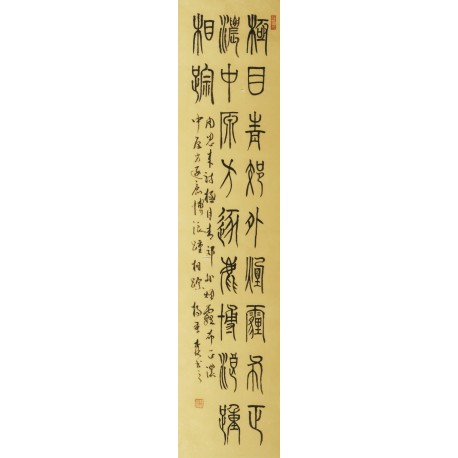 極目青郊外煙霾布正
濃中原方逐鹿博浪踵
相踪
周恩来詩極目青郊外烟霾布正濃
中原方逐鹿博浪踵相踪